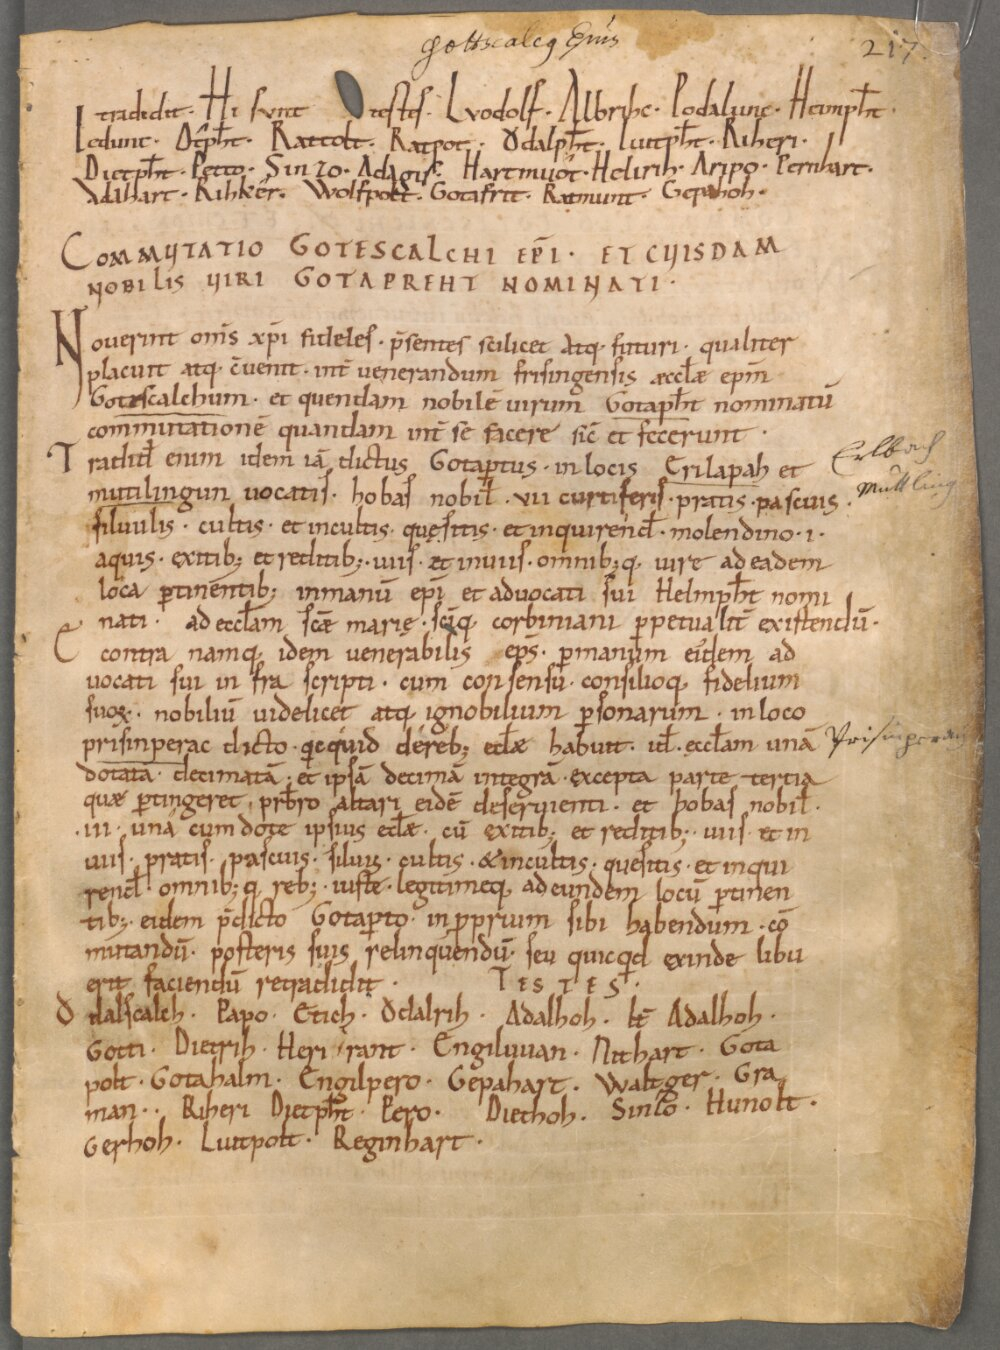 gottscalcq Epus
217.
tradidit · Hi sunt testes · Lvodolf · Albrihc · Podalunc · Heimpħt ·
Ledunc · Otpħt · Rattolt · Ratpot · Odalpħt · Luitpħt · Riheri ·
Dietpħt · Petto · Sinzo · Adagis · Hartmuot · Helirih · Aripo · Pernhart ·
Adalhart · Rihker · Wolfpolt · Gotafrit · Ratmunt · Gepahoh ·
COMMUTATIO GOTESCALCHI EPĪ · ET CUISDAM
NOBILIS UIRI GOTAPREHT NOMINATI ·
Nouerint omīs xp̄i fideles · p̄sentes scilicet atq; futuri · qualiter
placuit atq; c̄uenit · int̄ venerandum frisingensis æccłæ ep̄m
Gotescalchum · et quendam nobilē uirum Gotapħt nominatū
commutationē quandam int̄ se facere sic̄ et fecerunt ·
Tradiđ enim idem iā dictus Gotap̄tus · in locis Erilapah et
mutilingun uocatis · hobas nobił · VII curtiferis · pratis · pascuis ·
siluulis · cultis · et incultis · quęsitis · et inquirenđ · molendino · I ·
aquis · exitib; et reditib; · uiis · et inuiis · omnib; q; iure ad eadem
loca ptinentib; in manū ep̄i et aduocati sui Helmpħt nomi
nati · ad eccłam sc̄æ marię · sc̄iq; corbiniani ppetualit̄ existendū ·
E contra namq; idem uenerabilis ep̄s · p manum eidem ad
uocati sui infra scripti · cum consensu · consilioq; fidelium
suoꝝ · nobiliū uidelicet atq; ignobilium psonarum · in loco
prisinperac dicto · quicquid de reb; eccłæ habuit · id · eccłam unā
dotatā · decimatā · et ipsā decimā integrā · excepta parte tertia
quæ ptingeret prb̄ro altari eidē deseruienti · et hobas nobił ·
· III · unā cum dote ipsius eccłæ · cū exitib; et reditib; · uiis · et in
uiis · pratis · pascuis · siluis · cultis · & incultis · quesitis · et inqui
renđ · omnib; q; reb; · iuste · legitimeq; ad eundem locū ptinen
tib; · eidem p̄dicto Gotapto · in pprium sibi habendum · cō
mutandū · posteris suis relinquendū · seu quicqid exinde libu
erit faciendū retradidit · TESTES ·
Odalscalch · Papo · Etich · Odalrih · Adalhoh · it̄ Adalhoh ·
Gotti · Dietrih · Herirant · Engiluuan · Nithart · Gota
polt · Gotahalm · Engilpero · Gepahart · Waltger · Gra
man · · Riheri Dietpħt · Pero · Diethoh · Sinzo · Hunolt ·
Gerhoh · Luitpolt · Reginhart ·
Erlbach
Muttling
Prisinperac